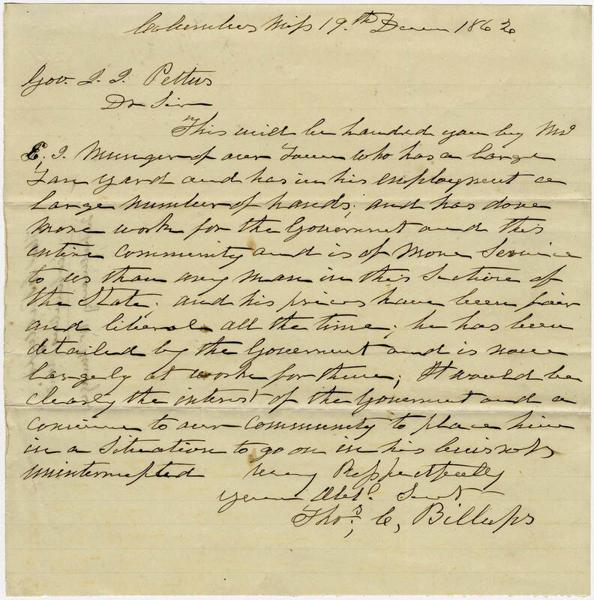 Columbus Miss 19th Decem 1862
Gov. J. J. Pettus
Dr Sir
This will be handed you by Mr
E, J. Munger of our Town who has a large
Tan yard and has in his employment a
large number of hands; and has done
more work for the Government and this
entire community and is of more service
to us than any man in this section of
the State; and his prices have been fair
and liberal all the time; he has been
detailed by the Government and is now
largely at work for them; It would be
clearly the interest of the Government and a
to our community to place him
in a situation to go on in his business
uninterrupted Very Respectfully
your Obt. Servt
Thos. C, Billups